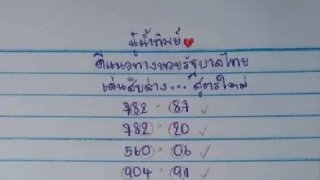 นู๋น้ำทิพย์❤
ตีแนวทางหวยรัฐบาลไทย
เด่นสิบล่าง... สูตรใหม่
782 = 87 ✓
782 = 20 ✓
560 = 06 ✓
904 = 91 ✓